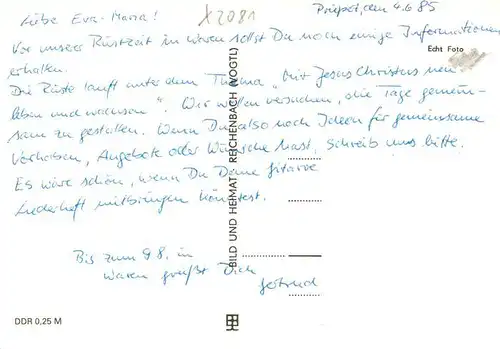 Liebe Eva-Maria!
X2081
Priepert, den 4.6.85
Vor unserer Rüstzeit in Waren sollst Du noch einige Informationen
Echt Foto
erhalten.
Die Rüste läuft unter dem Thema „Mit Jesus Christus neu
leben und wachsen". Wir wollen versuchen, die Tage gemein-
sam zu gestalten. Wenn Du also noch Ideen für gemeinsame
Vorhaben, Angebote oder Wünsche hast, schreib uns bitte.
Es wäre schön, wenn Du Deine Gitarre
Liederheft mitbringen könntest.
Bis zum 9.8. in
Waren grüßt Dich
BILD UND HEIMAT REICHENBACH (VOGTL)
DDR 0,25 M